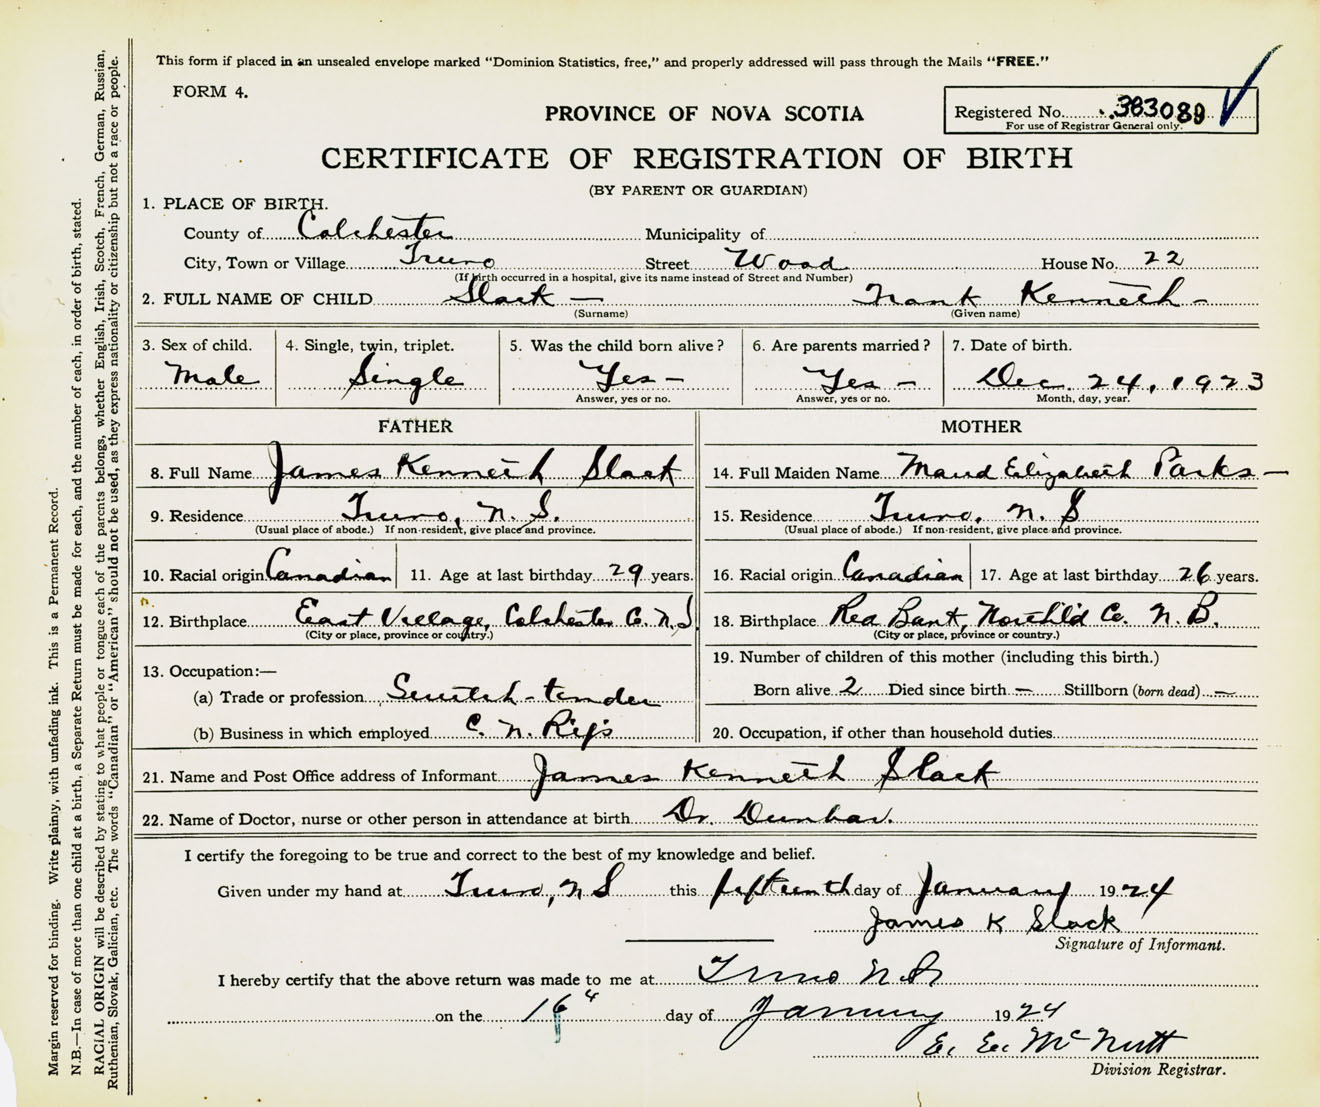 This form if placed in an unsealed envelope marked "Dominion Statistics, free," and properly addressed will pass through the Mails "FREE."
FORM 4.
PROVINCE OF NOVA SCOTIA
Registered No. 383089
For use of Registrar General only.
CERTIFICATE OF REGISTRATION OF BIRTH
(BY PARENT OR GUARDIAN)
1. PLACE OF BIRTH.
County of Colchester Municipality of
City, Town or Village Truro Street Wood House No. 22
(If birth occurred in a hospital, give its name instead of Street and Number)
2. FULL NAME OF CHILD Slack — Frank Kenneth —
(Surname) (Given name)
3. Sex of child. 4. Single, twin, triplet. 5. Was the child born alive? 6. Are parents married? 7. Date of birth.
Male Single Yes — Yes — Dec. 24, 1923
Answer, yes or no. Answer, yes or no. Month, day, year.
FATHER MOTHER
8. Full Name James Kenneth Slack 14. Full Maiden Name Maud Elizabeth Parks —
9. Residence Truro, N. S. 15. Residence Truro, N. S
(Usual place of abode.) If non-resident, give place and province. (Usual place of abode.) If non-resident, give place and province.
10. Racial origin Canadian 11. Age at last birthday 29 years. 16. Racial origin Canadian 17. Age at last birthday 26 years.
12. Birthplace East Village, Colchester Co. N.S. 18. Birthplace Red Bank, North'ld Co. N. B.
(City or place, province or country.) (City or place, province or country.)
19. Number of children of this mother (including this birth.)
13. Occupation:—
(a) Trade or profession Switch-tender Born alive 2 Died since birth — Stillborn (born dead) —
(b) Business in which employed C. N. Ry's 20. Occupation, if other than household duties
21. Name and Post Office address of Informant James Kenneth Slack
22. Name of Doctor, nurse or other person in attendance at birth Dr. Dunbar.
I certify the foregoing to be true and correct to the best of my knowledge and belief.
Given under my hand at Truro, N S this fifteenth day of January 1924
James K Slack
Signature of Informant.
I hereby certify that the above return was made to me at Truro N.S
on the 16 day of January 1924
E. Ee McNutt
Division Registrar.
Margin reserved for binding. Write plainly, with unfading ink. This is a Permanent Record.
N.B.—In case of more than one child at a birth, a Separate Return must be made for each, and the number of each, in order of birth, stated.
RACIAL ORIGIN will be described by stating to what people or tongue each of the parents belongs, whether English, Irish, Scotch, French, German, Russian,
Ruthenian, Slovak, Galician, etc. The words "Canadian" or "American" should not be used, as they express nationality or citizenship but not a race or people.